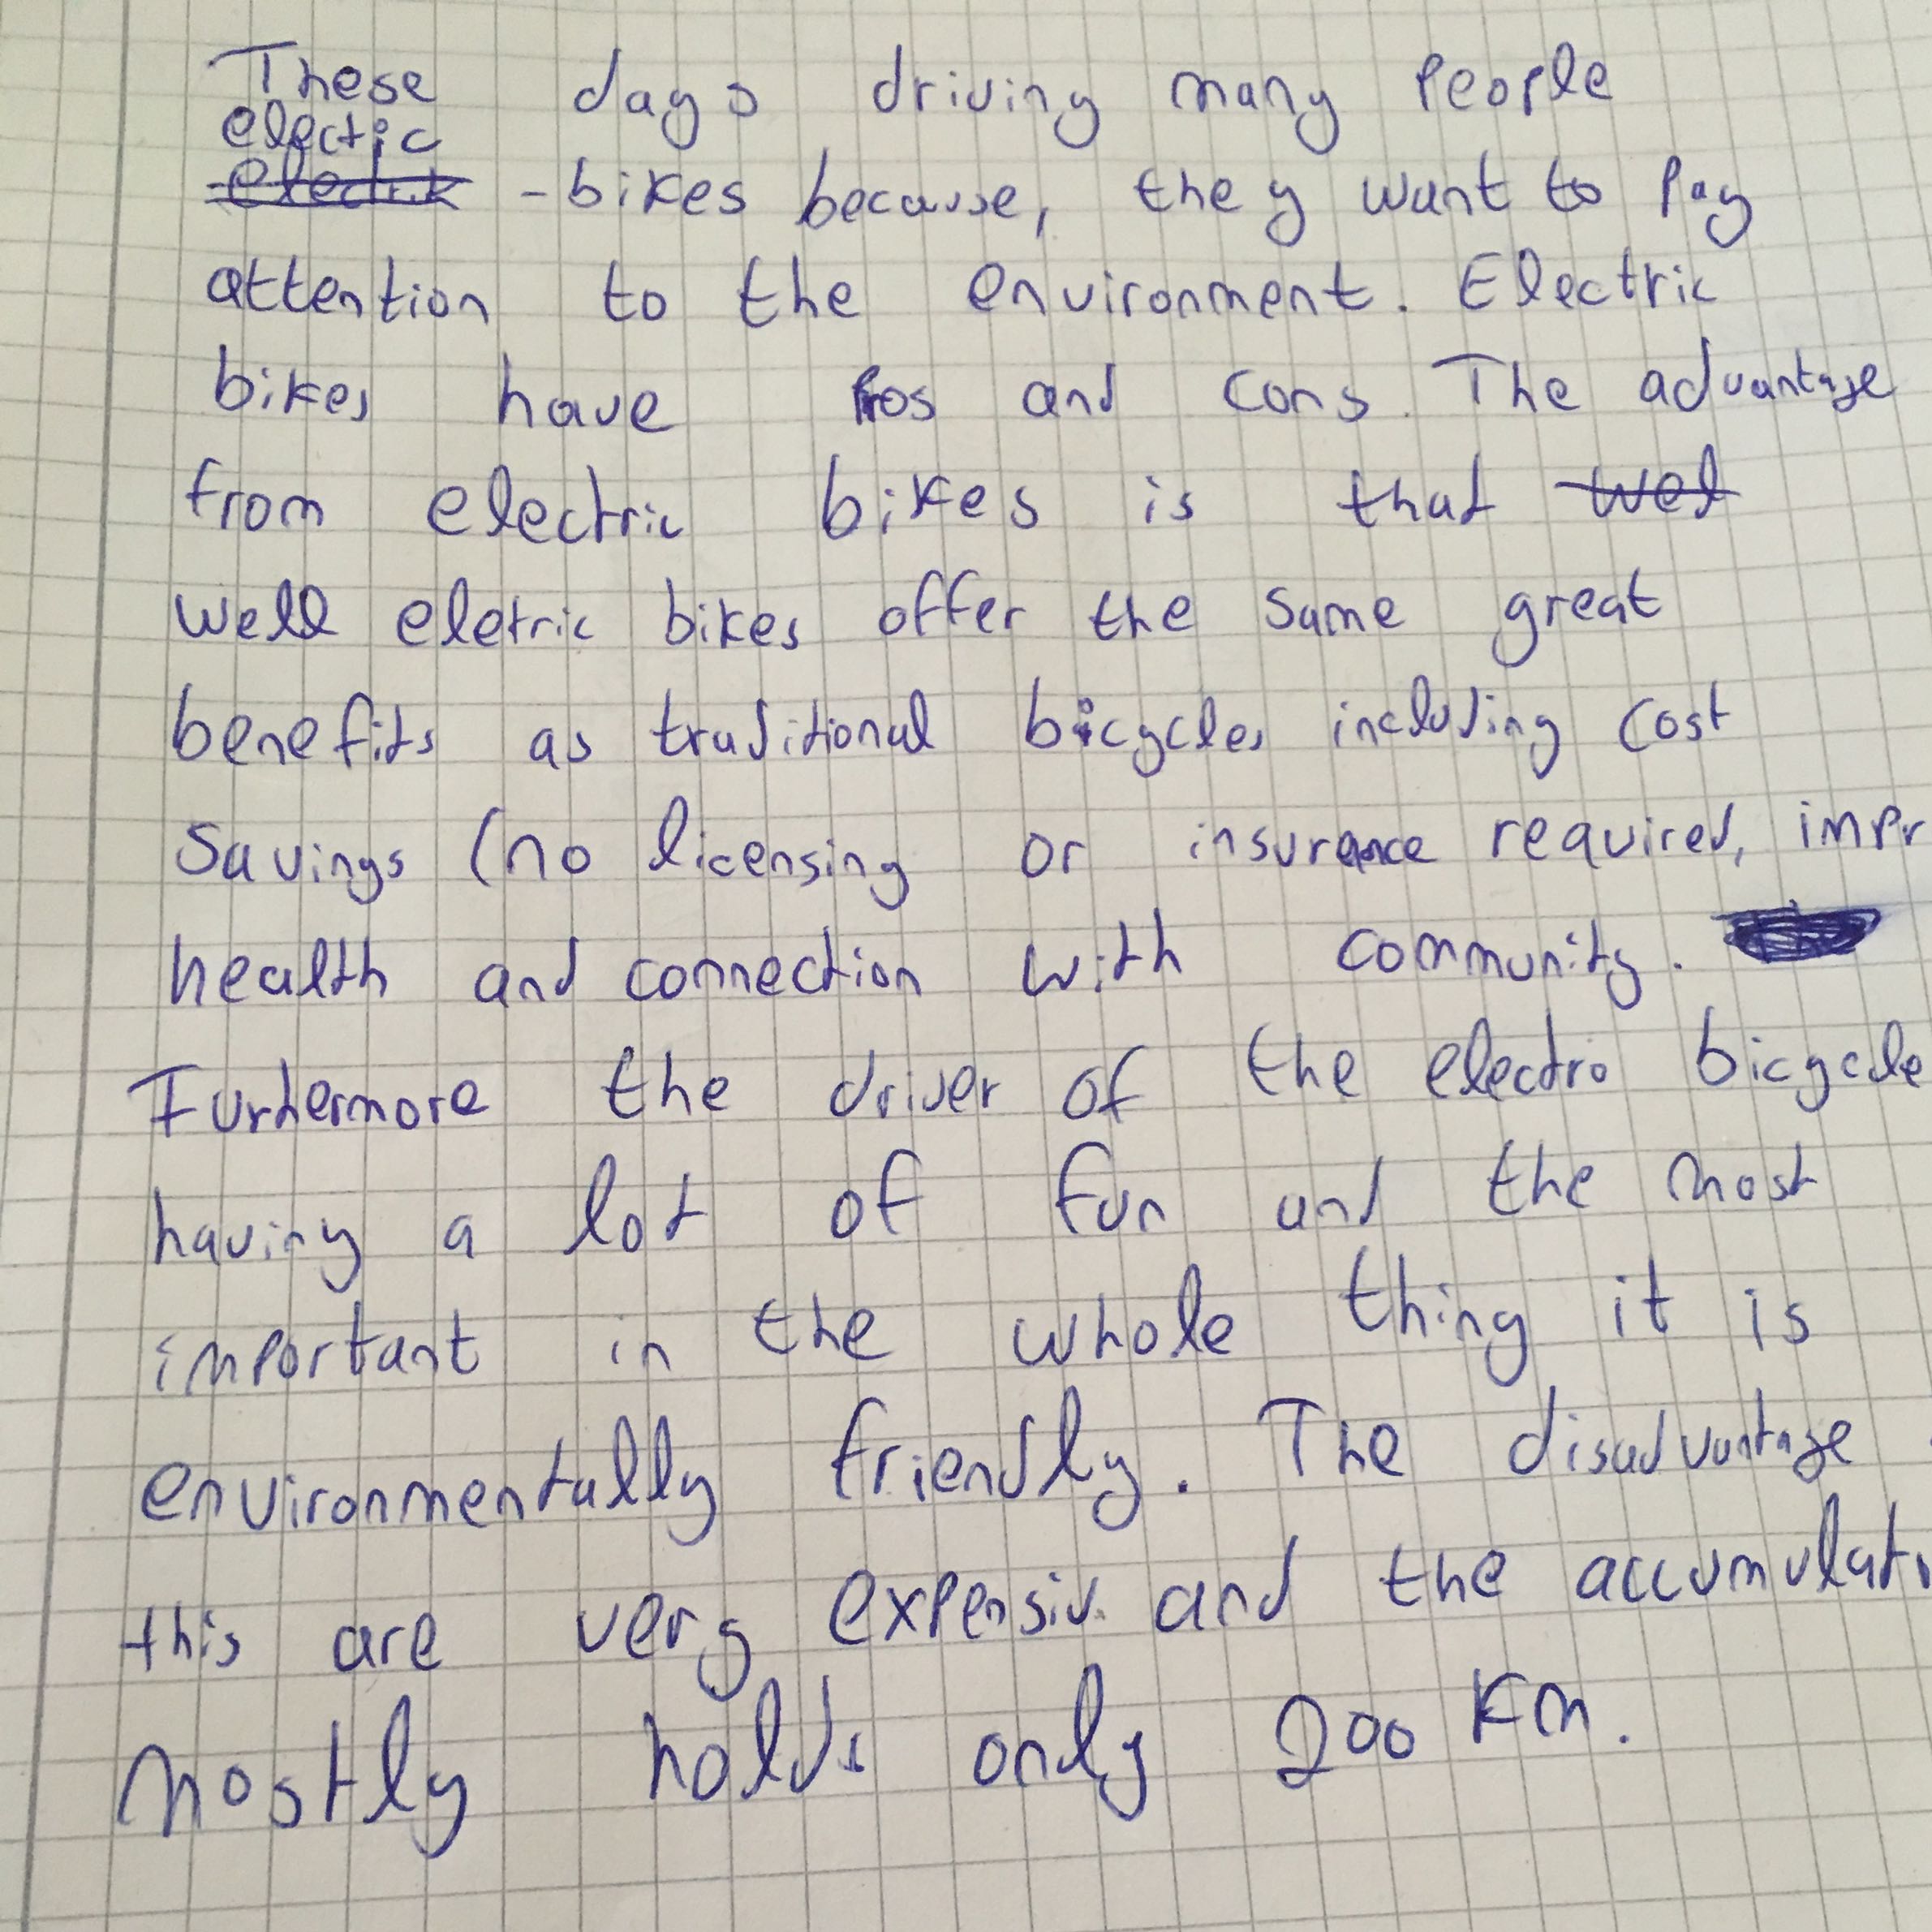 These days driving many people
electic
electrik - bikes because, they want to pay
attention to the environment. Electric
bikes have Pros and cons. The advantage
from electric bikes is that wel
well eletric bikes offer the same great
benefits as traditional bicycles including cost
savings (no licensing or insurance required, impr
health and connection with community.
Furhermore the driver of the electro bicycle
having a lot of fun and the most
important in the whole thing it is
environmentally friendly. The disadvantage
this are very expensiv and the accumulato
mostly holds only 200 Km.